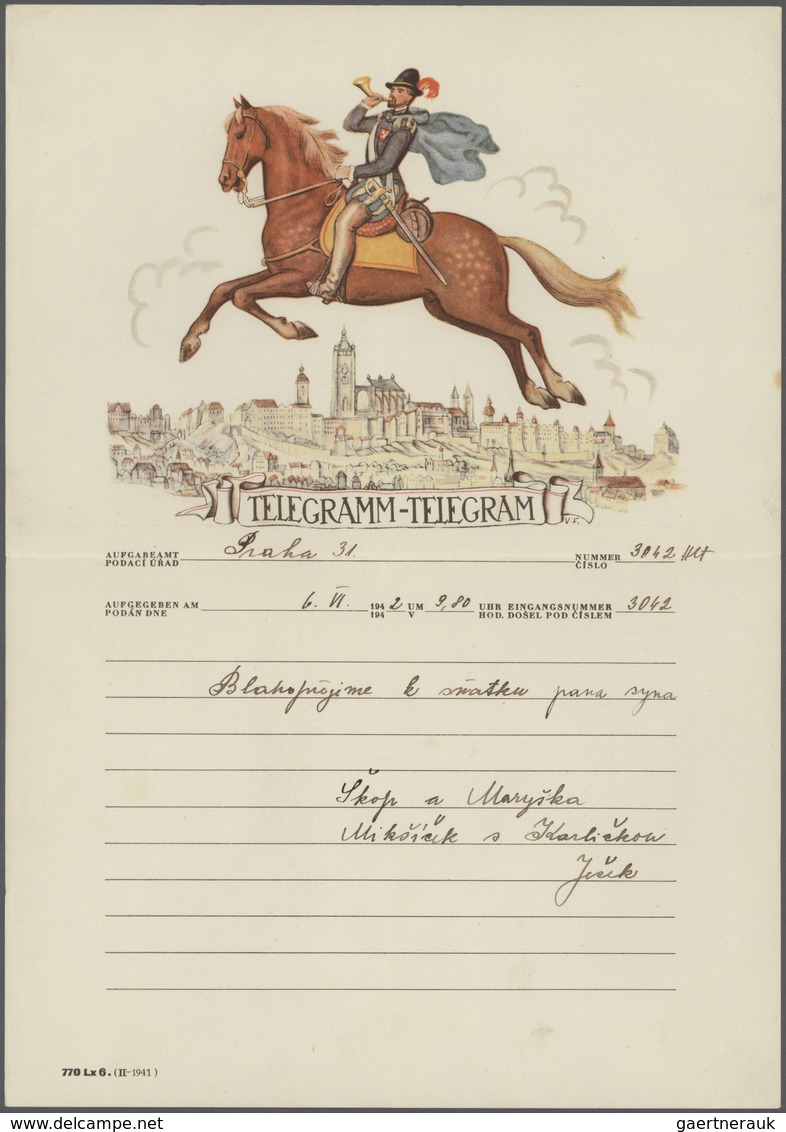 TELEGRAMM-TELEGRAM
V.F.
AUFGABEAMT Praha 31. NUMMER 3042
PODACÍ ÚŘAD ČÍSLO
AUFGEGEBEN AM 6. VI. 194 2 UM 9,80 UHR EINGANGSNUMMER 3042
PODÁN DNE 194 V HOD. DOŠEL POD ČÍSLEM
Blahopřejime k sňatku pana syna
Škop a Maryška
Mikšíček s Karličkou
Ješek
770 Lx 6. (II-1941)
delcampe.net
gaertnerauk